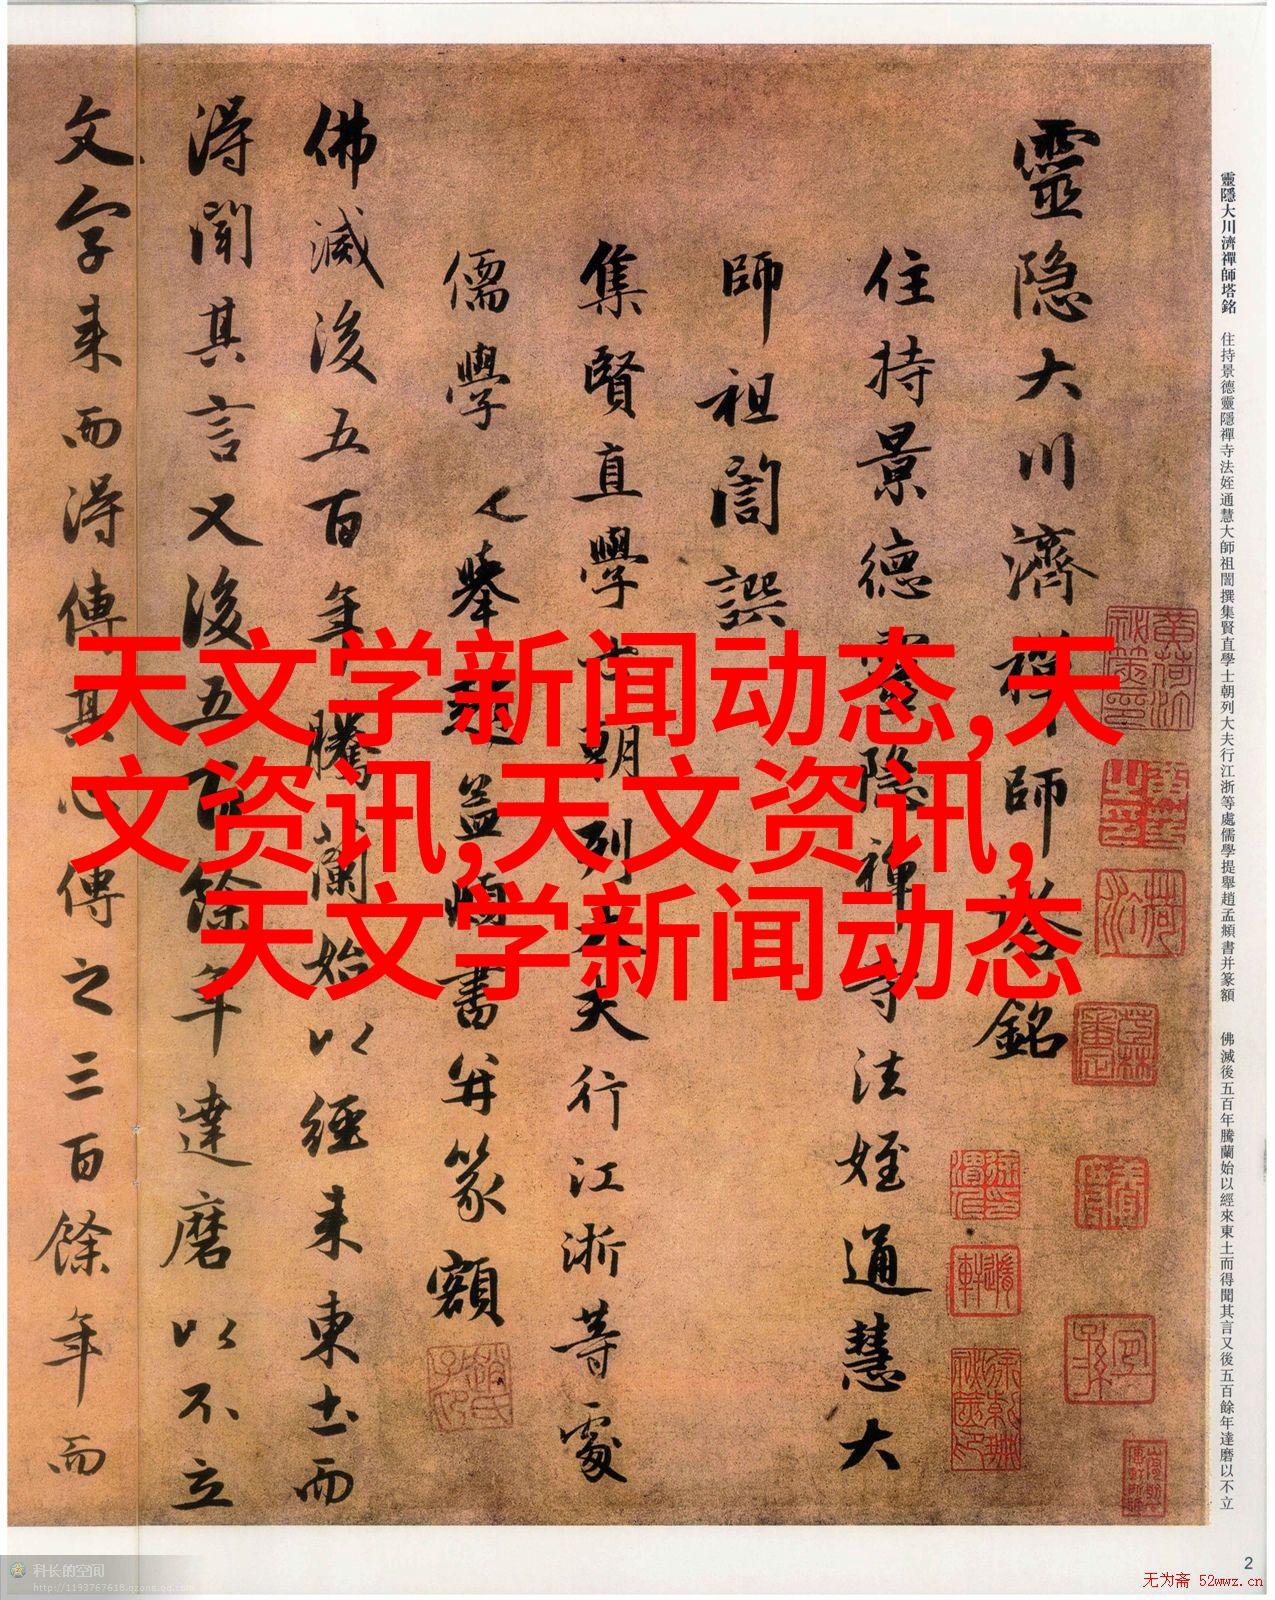 靈隐大川濟禅師塔銘
住持景德靈隐禅寺法姪通慧大
師祖誾譔
集賢直學士朝列大夫行江浙等處
儒學提舉趙孟頫書并篆額
佛滅後五百年騰蘭始以經来東土而
得聞其言又後五百餘年達磨以不立
文字来而得傳其心傳之三百餘年而
靈隱大川濟禪師塔銘 住持景德靈隱禪寺法姪通慧大師祖誾撰集賢直學士朝列大夫行江浙等處儒學提舉趙孟頫書并篆額 佛滅後五百年騰蘭始以經來東土而得聞其言又後五百餘年達磨以不立
天文学新闻动态,天
文资讯,天文资讯,
天文学新闻动态
2
科长的空间
http://1193767618.qzone.qq.com
无为斋 52wwz.cn